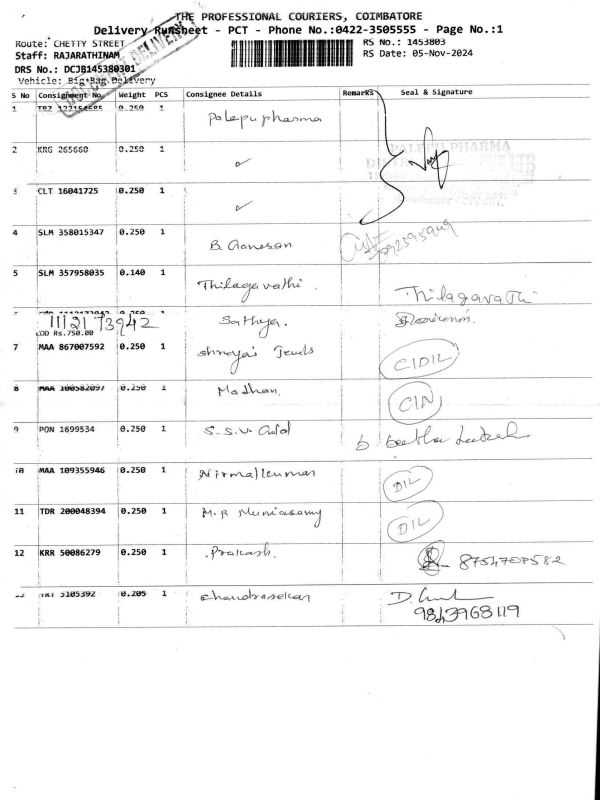 THE PROFESSIONAL COURIERS, COIMBATORE
Delivery Runsheet - PCT - Phone No.:0422-3505555 - Page No.:1
Route: CHETTY STREET
RS No.: 1453803
Staff: RAJARATHINAM
RS Date: 05-Nov-2024
DRS No.: DCJB145380301
Vehicle: Big Bag Delivery
S No Consignment No. Weight PCS Consignee Details Remarks Seal & Signature
1 0.250 1 Palepu pharma
2 KRG 265660 0.250 1
PALEPU PHARMA
3 CLT 16041725 0.250 1
4 SLM 358015347 0.250 1 B. Ganesan
5 SLM 357958035 0.140 1 Thilagavathi. Thilagavathi
1112173942 Sathya.
COD Rs.750.00
7 MAA 867007592 0.250 1 Shreyas Jewels CIDIL
8 MAA 100582097 0.250 1 Madhan. CIN
9 PON 1699534 0.250 1 S.S.V. Gold
10 MAA 109355946 0.250 1 Nirmalkumar DIL
11 TDR 200048394 0.250 1 M.R Muniasamy DIL
12 KRR 50086279 0.250 1 Prakash. 8754708582
5105392 0.205 1 Chandrasekar
9843968119